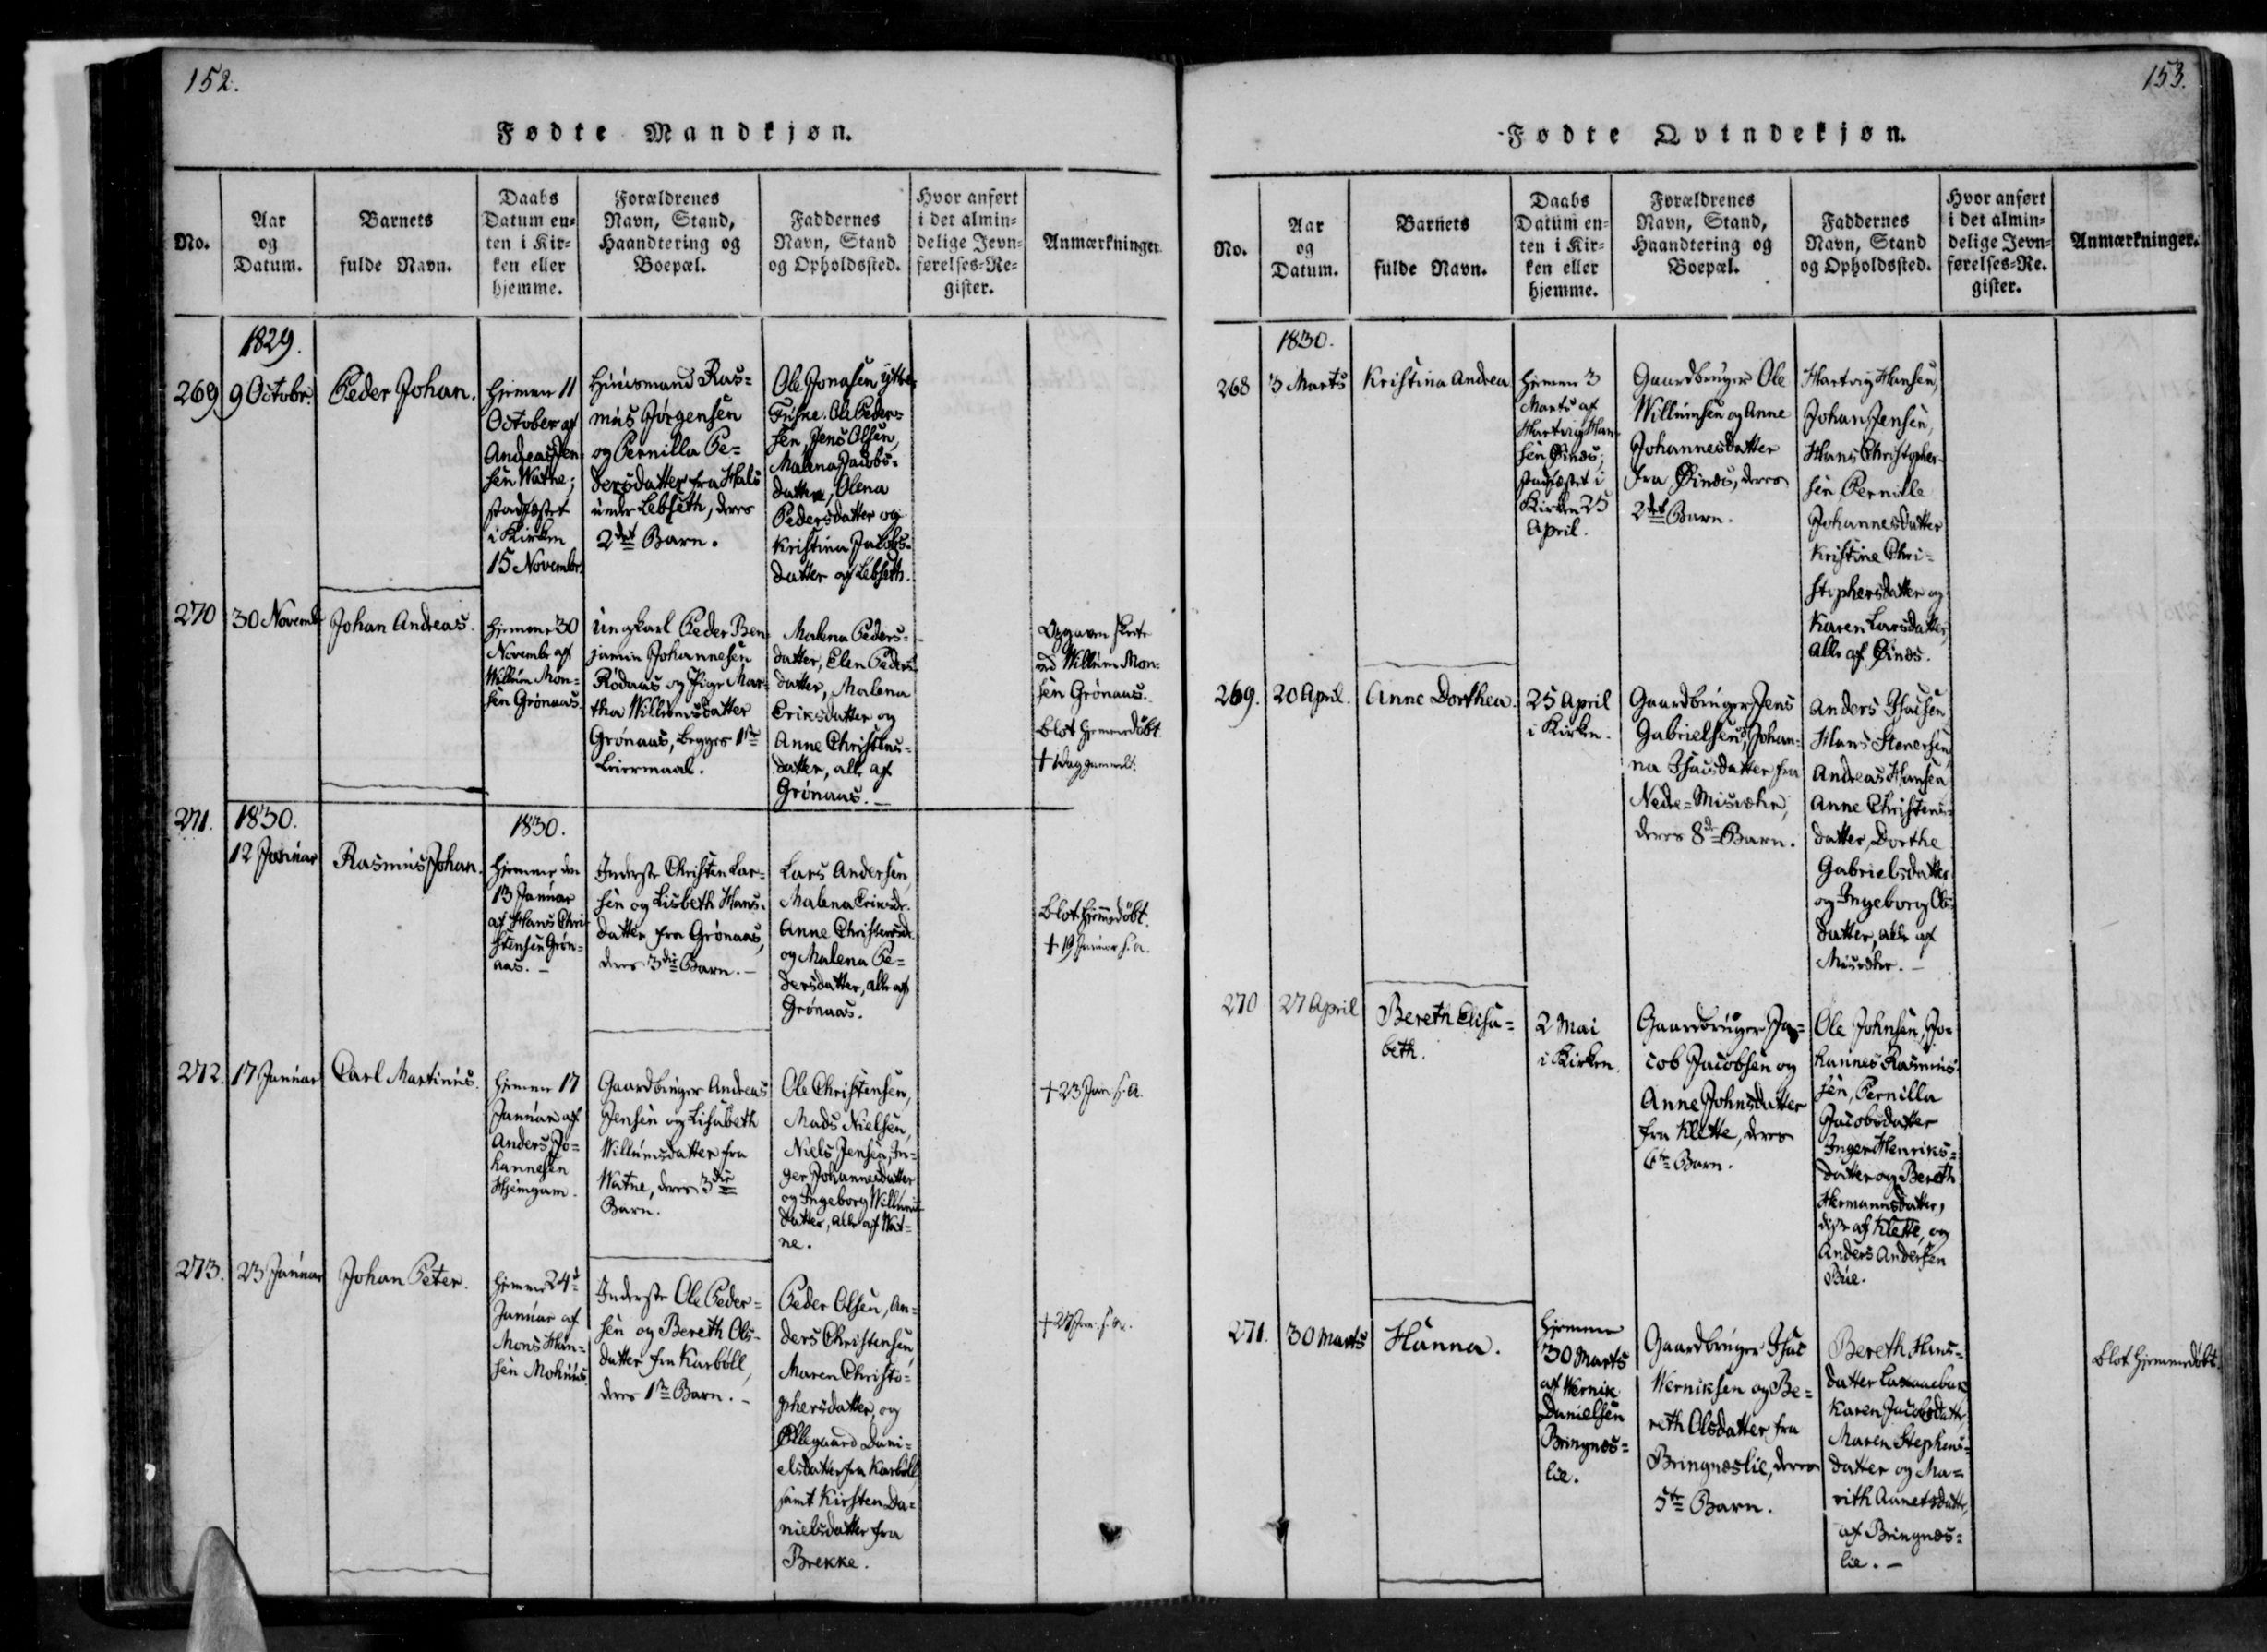 152.
Fødte Mandkjøn.
No.
Aar
og
Datum.
Barnets
fulde Navn.
Daabs
Datum en=
ten i Kir=
ken eller
hjemme.
Forældrenes
Navn, Stand,
Haandtering og
Boepæl.
Faddernes
Navn, Stand
og Opholdssted.
Hvor anført
i det almin=
delige Jevn=
førelses=Re=
gister.
Anmærkninger.
1829.
269
9 Octobr.
Peder Johan.
Hjemme 11
October af
Andreas Jen
sen Watne;
stadfæstet
i Kirken
15 Novembr.
Huusmand Ras=
mus Jørgensen
og Pernilla Pe=
dersdatter fra Hals
under Lebseth, deres
2det Barn.
Ole Jonasen ytte
Ole Peder=
sen, Jens Olsen,
Malena Jacobs=
datter, Olena
Pedersdatter og
Kristina Jacobs=
datter af Lebseth.
270
30 Novembr
Johan Andreas.
Hjemme 30
Novembr af
Willum Mon=
sen Grønaas.
Ungkarl Peder Ben
jamin Johannesen
Rødaas og Pige Mar=
tha Willumsdatter
Grønaas, begges 1ste
Leiermaal.
Malena Peders=
datter, Elen Peders
datter, Malena
Eriksdatter og
Anne Christens=
datter, alle af
Grønaas. —
Opgaven skete
ved Willum Mon=
sen Grønaas.
Blot hjemmedøbt.
† 1 dag gammelt.
271.
1830.
12 Januar
Rasmus Johan.
1830.
Hjemme den
13 Januar
af Hans Chri
stensen Grøn=
aas. —
Inderste Christen Lar=
sen og Lisbeth Hans=
datter fra Grønaas,
deres 3die Barn. —
Lars Andersen,
Malena Ericsdr.
Anne Christensdr.
og Malena Pe=
dersdatter, alle af
Grønaas.
Blot hjemmedøbt.
† 19 Januar s. a.
272.
17 Januar
Carl Martinus.
Hjemme 17
Januar af
Anders Jo=
hannesen
Hjemgam.
Gaardbruger Andreas
Jensen og Lisabeth
Willumsdatter fra
Watne, deres 3die
Barn.
Ole Christensen,
Mads Nielsen,
Niels Jensen, In=
ger Johannesdatter
og Ingeborg Willums
datter, alle af Wat=
ne.
† 23 Jan. s. a.
273.
23 Januar
Johan Peter.
Hjemme 24de
Januar af
Mons Han=
sen Mohuus.
Inderste Ole Peder=
sen og Bereth Ols=
datter fra Karbøll,
deres 1ste Barn. —
Peder Olsen, An=
ders Christensen,
Maren Christo=
phersdatter, og
Ollegaard Dani=
elsdatter fra Karbøll,
samt Kirsten Da=
nielsdatter fra
Brekke.
† 27 Jan. s. a.
153.
Fødte Qvindekjøn.
No.
Aar
og
Datum.
Barnets
fulde Navn.
Daabs
Datum en=
ten i Kir=
ken eller
hjemme.
Forældrenes
Navn, Stand,
Haandtering og
Boepæl.
Faddernes
Navn, Stand
og Opholdssted.
Hvor anført
i det almin=
delige Jevn=
førelses=Re.
gister.
Anmærkninger.
1830.
268
3 Marts
Kristina Andrea
Hjemme 3
Marts af
Hartvig Han
sen Øinæs;
stadfæstet i
Kirken 25
April.
Gaardbruger Ole
Willumsen og Anne
Johannesdatter
fra Øinæs, deres
2det Barn.
Hartvig Hansen,
Johan Jensen,
Hans Christopher=
sen, Pernille
Johannesdatter
Kristine Chri=
stophersdatter og
Karen Larsdatter,
alle af Øinæs.
269.
20 April.
Anne Dorthea.
25 April
i Kirken.
Gaardbruger Jens
Gabrielsen, Johan=
na Isacsdatter fra
Nedre=Misvæhr,
deres 8de Barn.
Anders Isacsen,
Hans Stenersen,
Andreas Hansen
Anne Christens=
datter, Dorthe
Gabrielsdatter
og Ingeborg Ols
datter, alle af
Misvæhr. —
270
27 April
Bereth Elisa=
beth.
2 Mai
i Kirken.
Gaardbruger Ja=
cob Jacobsen og
Anne Johnsdatter
fra Klette, deres
6te Barn.
Ole Johnsen, Jo=
hannes Rasmus=
sen, Pernilla
Jacobsdatter
Inger Henriks=
datter og Bereth
Hermansdatter,
disse af Klette, og
Anders Andersen
Bue.
271.
30 Marts
Hanna.
Hjemme
30 Marts
af Wernik
Danielsen
Bringnæs=
lie.
Gaardbruger Isac
Werniksen og Be=
reth Olsdatter fra
Bringnæslie, deres
5te Barn.
Bereth Hans=
datter
Karen Jacobsdatter
Maren Stephens=
datter og Ma=
rith
af Bringnæs=
lie. —
Blot hjemmedøbt.